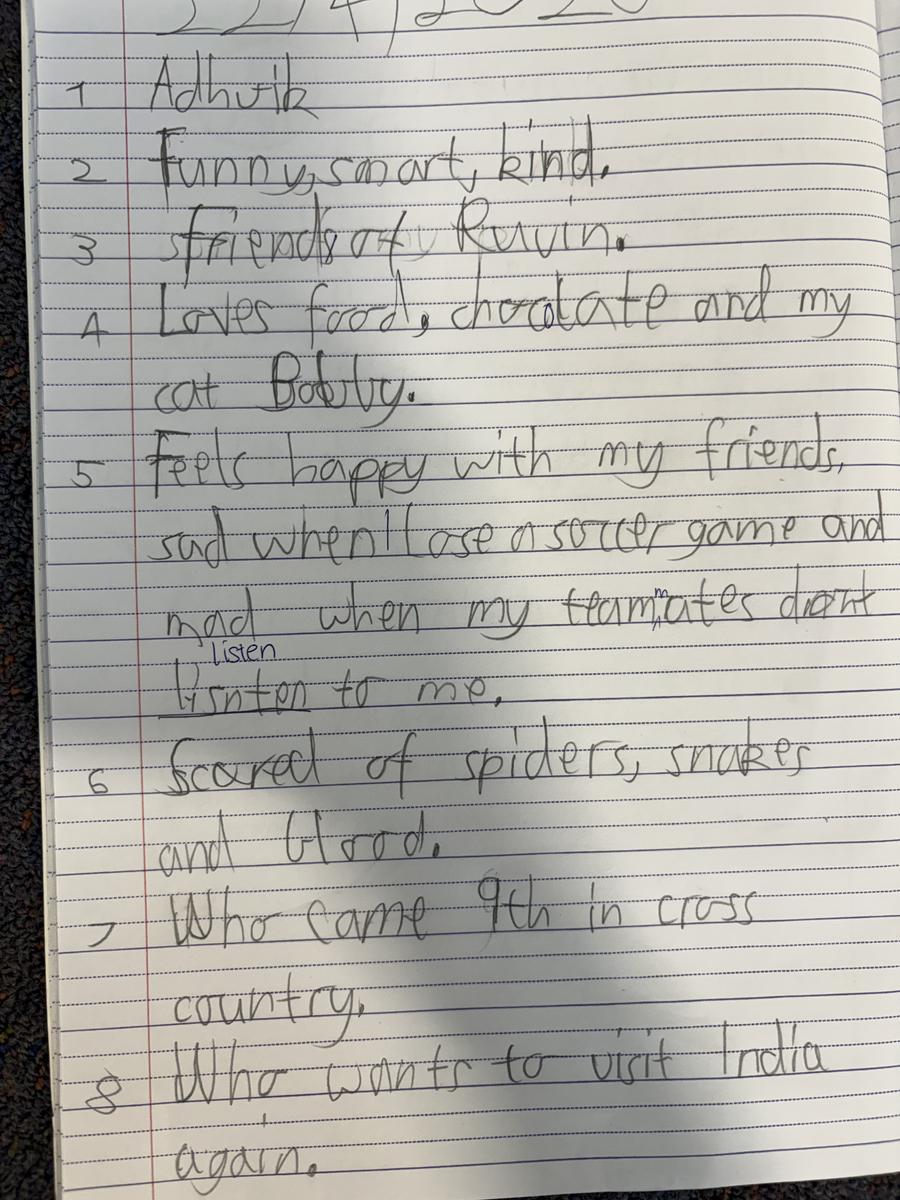 1 Adhvik
2 Funny, smart, kind.
3 friends of Ruvin.
4 Loves food, chocolate and my
cat Bobby.
5 Feels happy with my friends,
sad when I lose a soccer game and
mad when my teammates dont
listen
lisnten to me.
6 Scared of spiders, snakes
and blood.
7 Who came 9th in cross
country.
8 Who wants to visit India
again.